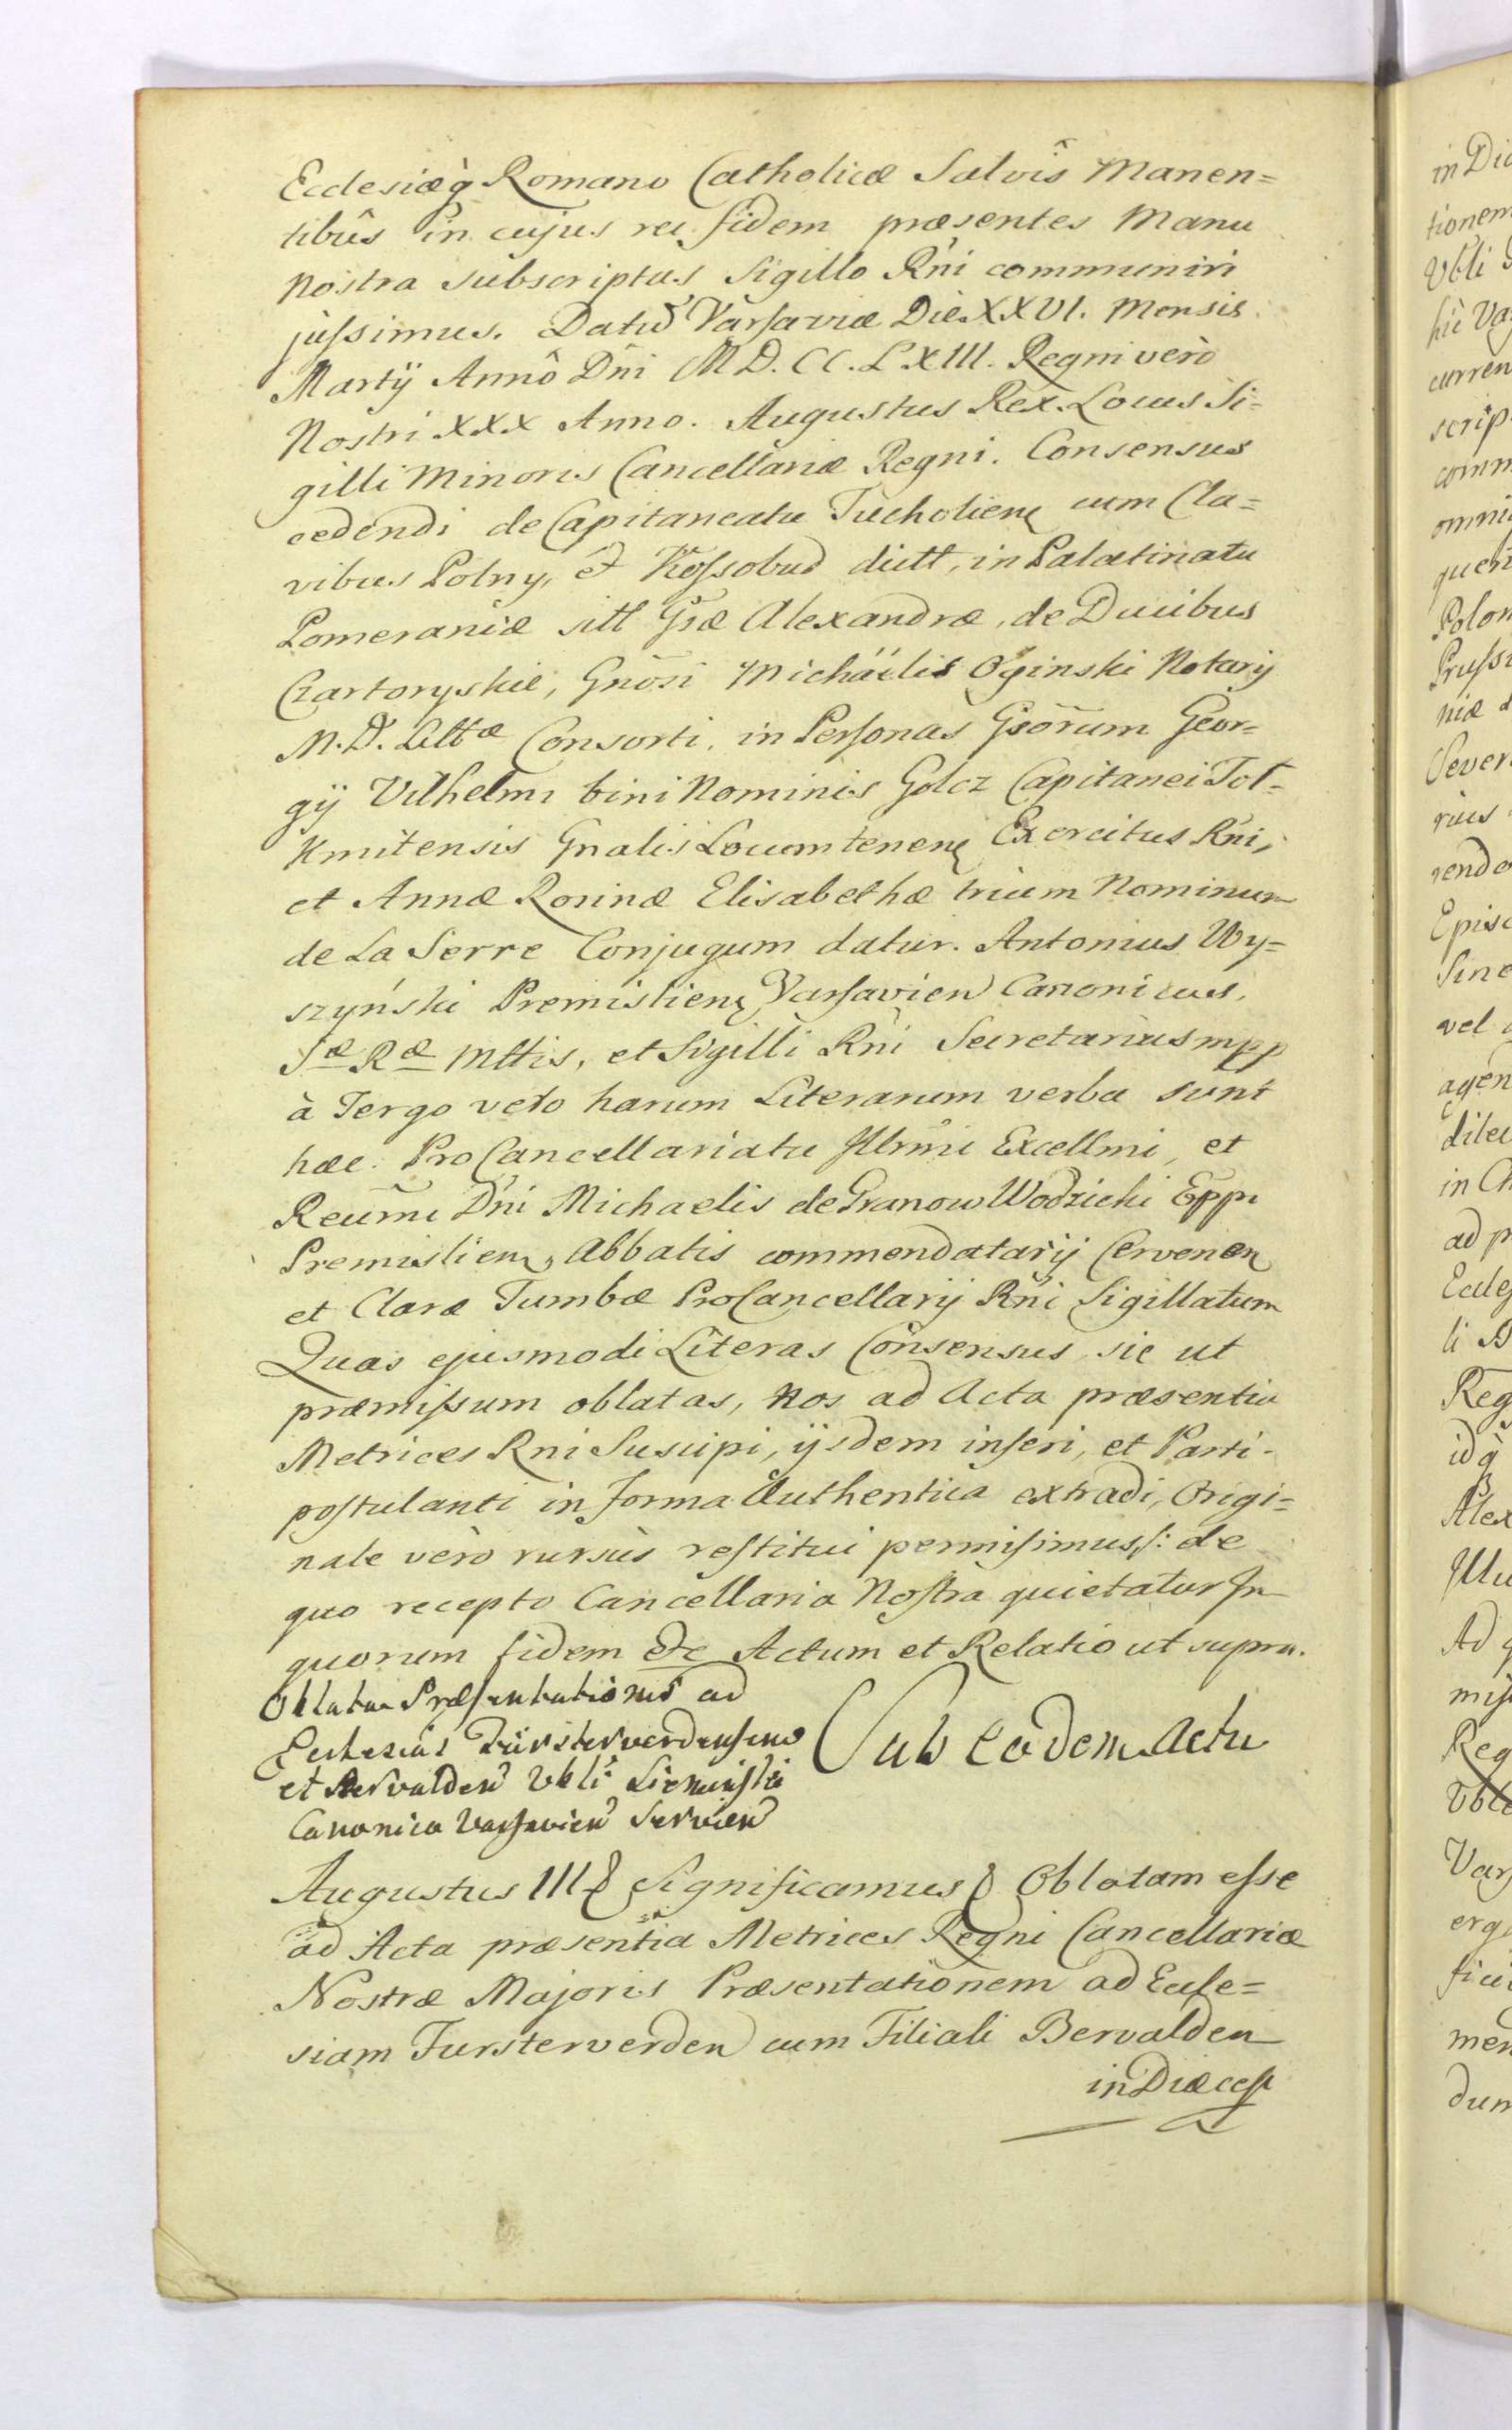 Ecclesiæq̀ Romano Catholicæ Salvis Manen=
tibûs in cujus rei fidem præsentes Manu
Nostra subscriptas Sigillo Rñi communiri
jussimus. Datũ Varsaviæ Die XXVI. Mensis
Martÿ Annô Dñi MD.CC.LXIII. Regni verò
Nostri XXX Anno. Augustus Rex. Locus Si=
gilli Minoris Cancellariæ Regni. Consensus
cedendi de Capitaneatu Tucholien cum Cla=
vibus Polny, et Kossobud dictt, in Palatinatu
Pomeraniæ sitt Gsæ Alexandræ, de Ducibus
Czartoryskie, Gnösi Michäelis Oginski Notarij
M.D. Littæ Consorti, in Personas Gsörum Geor=
gÿ Vilhelmi bini Nominis Golcz Capitanei Tol=
kmitensis Gnalis Locumtenen Exercitus Rñi,
et Annæ Rosinæ Elisabethæ trium Nominum
de La Serre Conjugum datur. Antonius Wy=
szyński Premislien, Varsavien Canonicus,
Sæ Ræ Mttis, et Sigilli Rñi Secretarius mpp
à Tergo vero harum Literarum verba sunt
hæc. Pro Cancellariatu Illrmi Excellmi, et
Reũmi Dñi Michaelis de Granow Wodzicki Eppi
Premislien, Abbatis commendatarij Cervenen
et Claræ Tumbæ ProCancellarij Rñi Sigillatum
Quas ejusmodi Literas Consensus sic ut
præmissum oblatas, Nos ad Acta præsentia
Metrices Rni Suscipi, ijsdem inseri, et Parti
postulanti in forma Authentica extradi, Origi=
nale verò rursùs restitui permisimus: de
quo recepto Cancellaria Nostra quietatur In
quorum fidem etc Actum et Relatio ut supra.
Oblata Præsentationis ad
Ecclesias Fürsterverdensem
et Bervalden Vbli
Canonico Varsavien Servien
Sub Eodem Actu
Augustus III Significamus Oblatam esse
ad Acta præsentia Metrices Regni Cancellariæ
Nostræ Majoris Præsentationem ad Eccle=
siam Fursterverden cum Filiali Bervalden
in Diæcesi